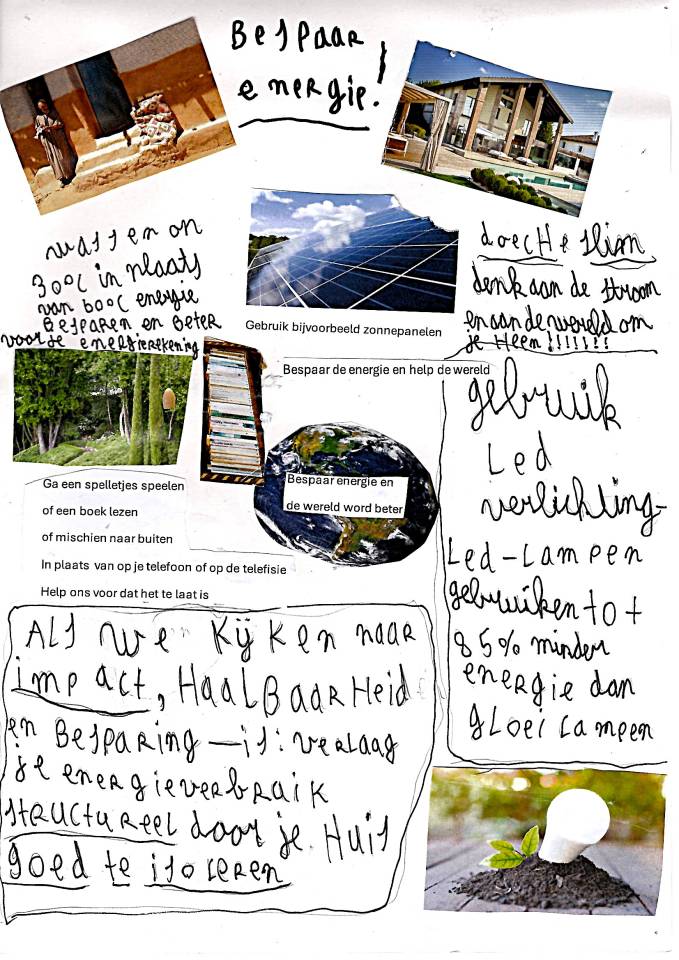 Bespaar
energie!
wassen on
30°C in plaats
van 60°C energie
Besparen en Beter
voor je energierekening
Gebruik bijvoorbeeld zonnepanelen
doecHe slim
denk aan de stroom
en aan de wereld om
je Heen!!!!!!!
Bespaar de energie en help de wereld
Bespaar energie en
de wereld word beter
Ga een spelletjes speelen
of een boek lezen
of mischien naar buiten
In plaats van op je telefoon of op de telefisie
Help ons voor dat het te laat is
gebruik
Led
verlichting-
Led-Lampen
gebruiken tot
85% minder
energie dan
gloeilampen
Als we kijken naar
impact, HaalBaarHeid
en Besparing - is: verlaag
je energieverbraik
structureel door je Huis
goed te isoleren